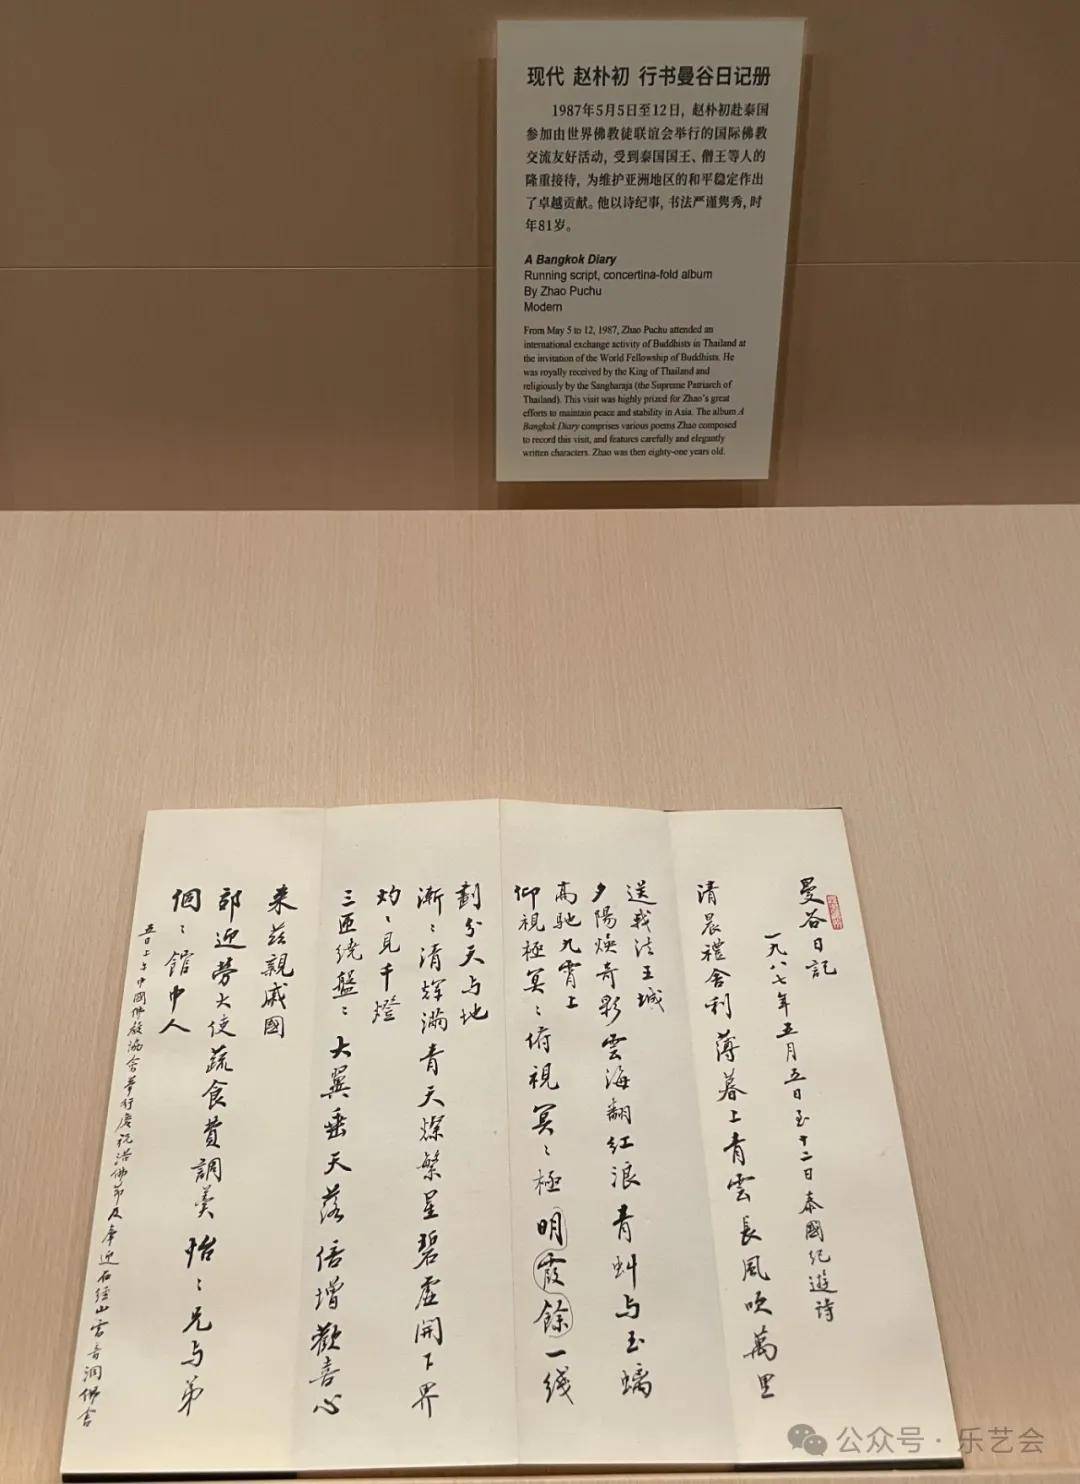 现代 赵朴初 行书曼谷日记册
1987年5月5日至12日，赵朴初赴泰国
参加由世界佛教徒联谊会举行的国际佛教
交流友好活动，受到泰国国王、僧王等人的
隆重接待，为维护亚洲地区的和平稳定作出
了卓越贡献。他以诗纪事，书法严谨隽秀，时
年81岁。
A Bangkok Diary
Running script, concertina-fold album
By Zhao Puchu
Modern
From May 5 to 12, 1987, Zhao Puchu attended an
international exchange activity of Buddhists in Thailand at
the invitation of the World Fellowship of Buddhists. He
was royally received by the King of Thailand and
religiously by the Sangharaja (the Supreme Patriarch of
Thailand). This visit was highly prized for Zhao's great
efforts to maintain peace and stability in Asia. The album A
Bangkok Diary comprises various poems Zhao composed
to record this visit, and features carefully and elegantly
written characters. Zhao was then eighty-one years old.
曼谷日記
一九八七年五月五日至十二日泰國紀遊詩
清晨禮舍利薄暮上青雲長風吹萬里
送我法王城
夕陽煥奇彩雲海翻紅浪青虯与玉螭
高馳九霄上
仰視極冥〻俯視冥〻極明霞餘一綫
劃分天与地
漸〻清輝滿青天燦繁星碧虛開下界
灼〻見千燈
三匝繞盤〻大翼垂天落倍增歡喜心
来兹親戚國
郊迎勞大使蔬食費調羹怡〻兄与弟
個〻館中人
五日上午中國佛教協會舉行慶祝浴佛節及奉迎石經山雷音洞佛舍
公众号·乐艺会